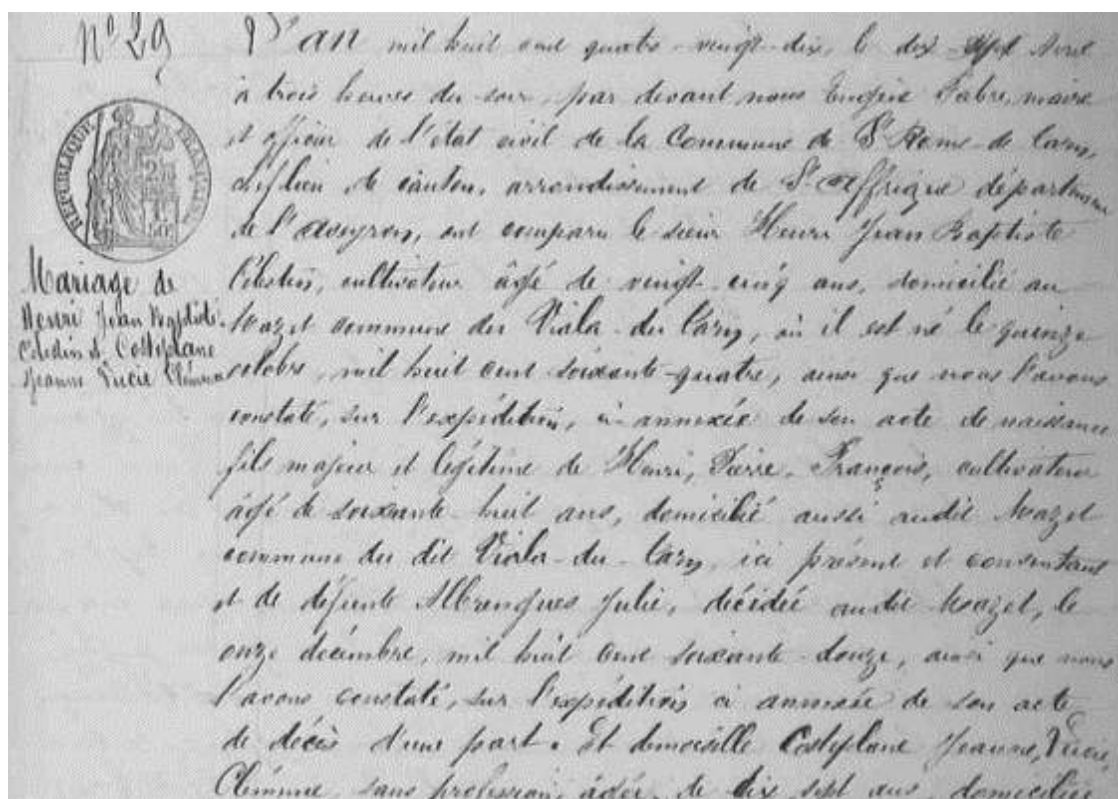 N° 29
L'an mil huit cent quatre-vingt-dix, le dix sept Avril
à trois heures du soir, par devant nous Eugène Fabre, maire
et officier de l'état civil de la Commune de St Rome-de-Tarn,
chef lieu de canton, arrondissement de St Affrique département
de l'Aveyron, ont comparu le sieur Henri Jean Baptiste
Célestin, cultivateur âgé de vingt-cinq ans, domicilié au
Mazet commune du Viala-du-Tarn, où il est né le quinze
octobre, mil huit cent soixante-quatre, ainsi que nous l'avons
constaté, sur l'expédition, ci annexée de son acte de naissance
fils majeur et légitime de Henri, Pierre, François, cultivateur
âgé de soixante huit ans, domicilié aussi audit Mazet
commune du dit Viala-du-Tarn, ici présent et consentant
et de défunte Albrengues Julie, décédée audit Mazet, le
onze décembre, mil huit cent soixante-douze, ainsi que nous
l'avons constaté, sur l'expédition ci annexée de son acte
de décès d'une part. Et demoiselle Costeplane Jeanne, Lucie,
Clémence, sans profession, âgée, de dix sept ans, domiciliée
RÉPUBLIQUE FRANÇAISE
Mariage de
Henri Jean Baptiste
Célestin et Costeplane
Jeanne Lucie Clémence